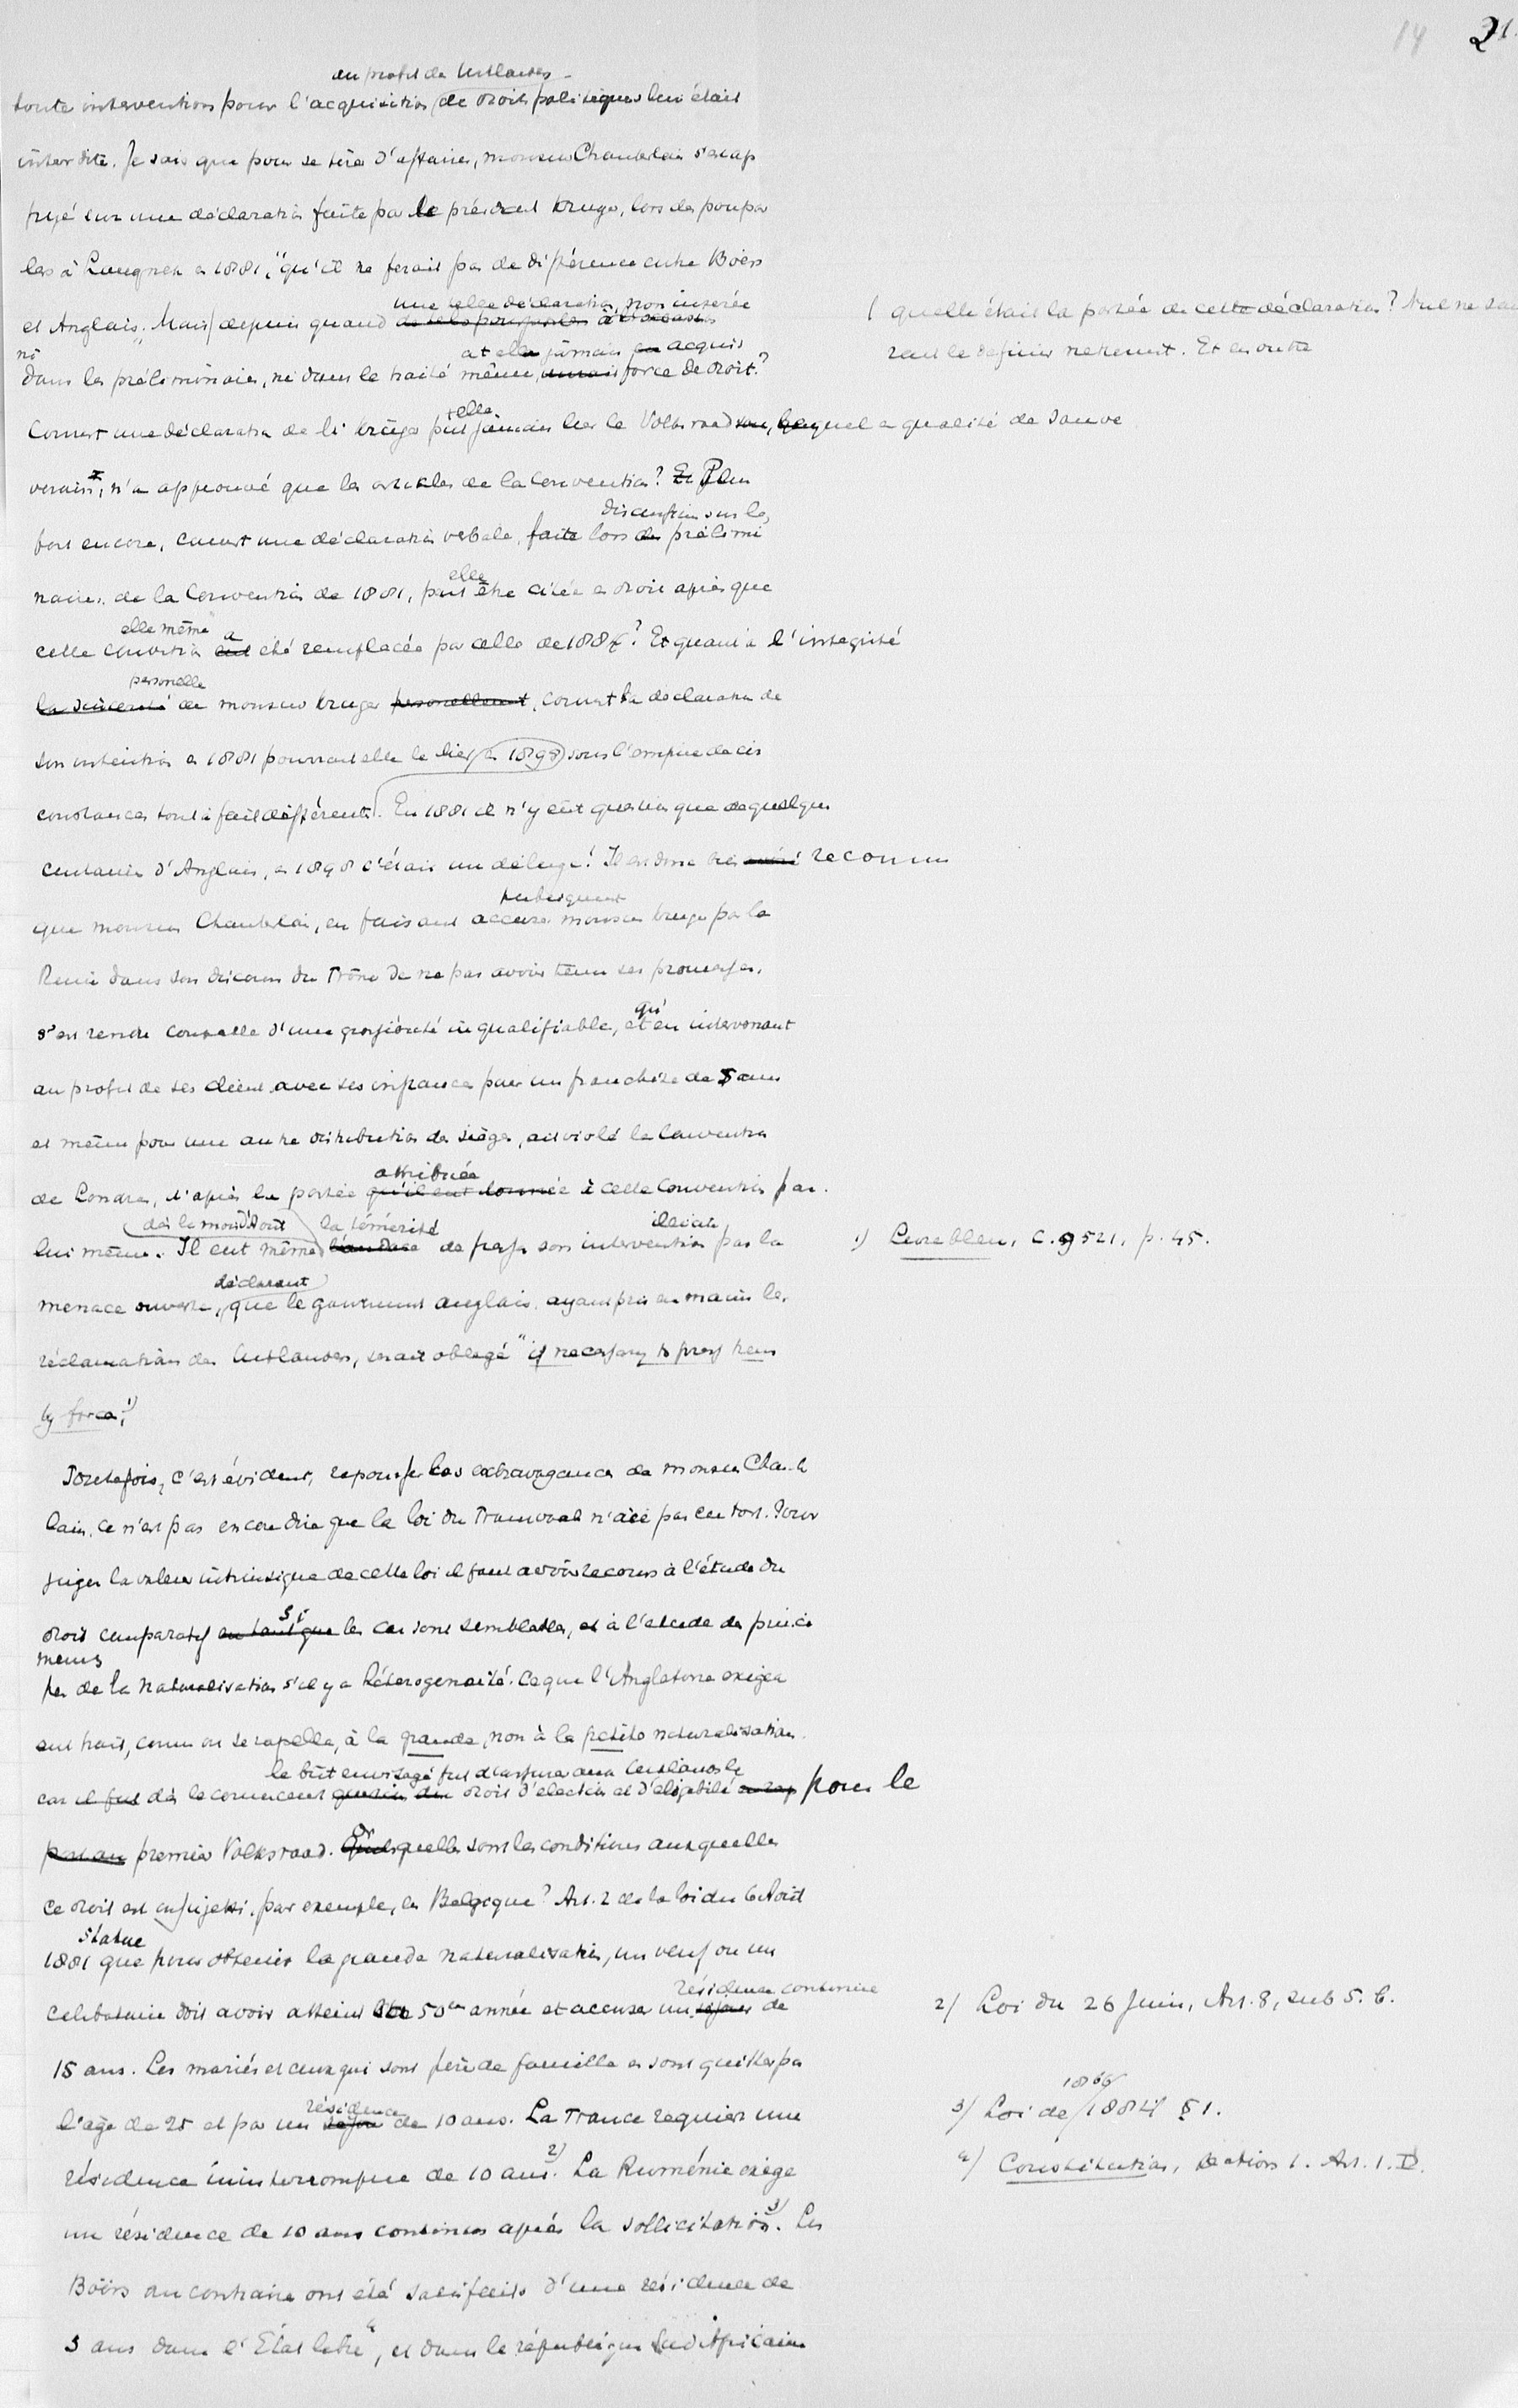 14 21.
au profit de Uitlanders
toute intervention pour l'acquisition de droits politiques leur était
interdite. Je sais que pour se tirer d'affaires, monsieur Chamberlain s'est ap
puyé sur une déclaration faite par le président Kruger, lors des pourpar
lers à Laingnek en 1881, "qu'il ne ferait pas de différence entre Boërs
une telle déclaration, non insérée
et Anglais". Mais depuis quand
( quelle était la portée de cette déclaration? Nul ne sau
rait le définir nettement. Et en outre
ni
a t elle jamais acquis
dans les préliminaires, ni dans le traité même, force de droit?
Comment une déclaration de Mr Kruger put elle jamais lier le Volksraad lequel en qualité de souve
verain, n'a approuvé que les articles de la Convention? Plus
discussion sur les
fort encore, comment une déclaration verbale, faite lors des prélimi
naires de la Convention de 1881, put elle être citée en droit après que
elle même a
cette convention été remplacée par celle de 1884? Et quant à l'intégrité
personelle
la sincerité de monsieur Kruger personellement, comment la déclaration de
son intention en 1881 pourrait elle le lier en 1898 sous l'empire de cir
constances tout à fait différentes. En 1881 il n'y eût question que de quelques
centaines d'Anglais, en 1898 c'était un déluge! Il est donc reconnu
publiquement
que monsieur Chamberlain, en faisant accuser monsieur Kruger par la
Reine dans son discours du Trône de ne pas avoir tenu ses promesses,
s'est rendu coupable d'une grossièreté inqualifiable, et qu'en intervenant
au profit de ses clients avec ses instances pour un franchise de 5 ans
et même pour une autre distribution de sièges, ait violé la Convention
attribuée
de Londres, d'après la portée qu'il eut donnée à cette Convention par
dès le mois d'Août la témérité
lui même. Il eut même l'audace de son intervention par la
1) Livre bleu, C. 9521, p. 45.
déclarant
menace ouverte, que le gouvernement anglais, ayant pris en mains les
réclamations des Uitlanders, serait obligé "if necessary to press them
by force". 1)
Toutefois, c'est évident, repousser les extravagances de monsieur Chamber
lain, ce n'est pas encore dire que la loi du Transvaal n'ait pas eu tort. Pour
juger la valeur intrinsique de cette loi il faut avoir recours à l'étude du
si
droit comparatif en tant que les cas sont semblables, et à l'étude des princi
mens
pes de la naturalisation s'il y a hétérogeneité. Ce que l'Angleterre exigea
eut trait, comme on se rapelle, à la grande, non à la petite naturalisation.
le bût envisagé fut d'assurer aux Uitlanders le
car il fut dès le commencement question du droit d'élection et d'éligibilité pour le
premier Volksraad. Or quelles sont les conditions auxquelles
ce droit est assujetti, par exemple, en Belgique? Art. 2 de la loi du 6 Août
statue
1881 que pour obtenir la grande naturalisation, un veuf ou un
résidence continue
celibataire doit avoir atteint sa 50me année et accuser un séjour de
15 ans. Les mariés et ceux qui sont père de famille en sont quittes par
résidence
l'age de 25 et par un séjour de 10 ans. La France requiert une
résidence ininterrompue de 10 ans. 2) La Ruménie exige
2) Loi du 26 Juin, Art. 8, sub 5. b.
une résidence de 10 ans continus après la sollicitation. 3) Les
1866
3) Loi de 1884 § 1.
Boërs au contraire ont été satisfaits d'une résidence de
3 ans dans l'État libre 4), et dans la république Sud Africaine
4) Constitution, Section 1. Art. 1. D.